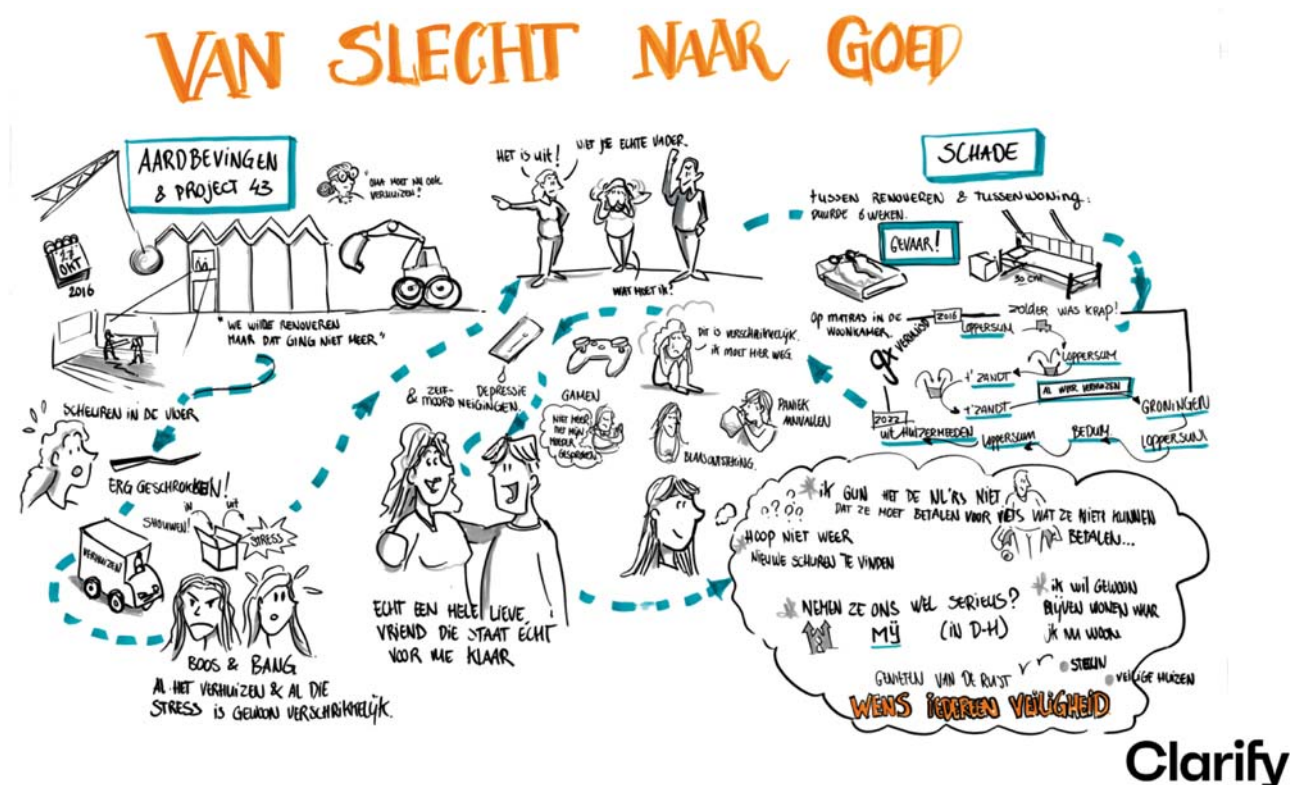 VAN SLECHT NAAR GOED
AARDBEVINGEN
& PROJECT 43
"OMA MOET NU OOK
VERHUIZEN!
27
OKT
2016
"WE WILDE RENOVEREN
MAAR DAT GING NIET MEER"
SCHEUREN IN DE VLOER
ERG GESCHROKKEN!
IN
UIT
SHOUWEN!
STRESS
VERHUIZEN
BOOS & BANG
AL HET VERHUIZEN & AL DIE
STRESS IS GEWOON VERSCHRIKKELIJK.
HET IS UIT!
NIET JE ECHTE VADER.
WAT MOET IK?
DEPRESSIE
& ZELF-
MOORD NEIGINGEN.
GAMEN
NIET MEER
MET MIJN
MOEDER
GESPROKEN
DIT IS VERSCHRIKKELIJK.
IK MOET HIER WEG.
PANIEK
AANVALLEN
BLAASONTSTEKING.
ECHT EEN HELE LIEVE
VRIEND DIE STAAT ECHT
VOOR ME KLAAR
SCHADE
TUSSEN RENOVEREN & TUSSENWONING:
DUURDE 6 WEKEN.
GEVAAR!
30 CM
OP MATRAS IN DE
WOONKAMER.
ZOLDER WAS KRAP!
9X VERHUISD
2016
LOPPERSUM
LOPPERSUM
t'ZANDT
t'ZANDT
AL WEER VERHUIZEN
GRONINGEN
LOPPERSUM
BEDUM
LOPPERSUM
2022
UITHUIZERMEEDEN
IK GUN HET DE NL'RS NIET
DAT ZE MOET BETALEN VOOR IETS WAT ZE NIET KUNNEN
BETALEN...
HOOP NIET WEER
NIEUWE SCHUREN TE VINDEN
NEMEN ZE ONS WEL SERIEUS?
MIJ (IN D-H)
IK WIL GEWOON
BLIJVEN WONEN WAAR
IK NU WOON.
GENIETEN VAN DE RUST
STEUN
VEILIGE HUIZEN
WENS IEDEREEN VEILIGHEID
Clarify